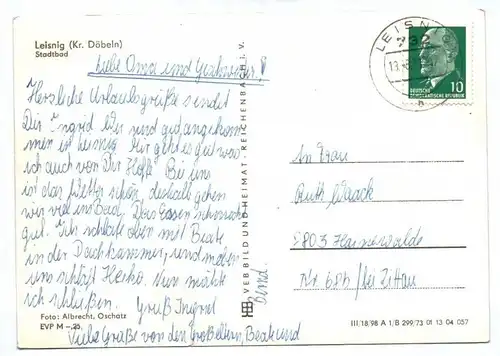 Leisnig (Kr. Döbeln)
Stadtbad
Liebe Oma und Geschwister!
Herzliche Urlaubsgrüße sendet
Dir Ingrid Wir sind gut angekommen
in Leisnig Mir geht es gut was
ich auch von Dir Hoffe Bei uns
ist das Wetter schön deshalb gehen
wir viel ins Bad. Das Essen schmeckt
gut. Ich schlafe oben mit Beate
in der Dachkammer, und neben
uns schläft Heiko. Nun möchte
ich schließen. Gruß Ingrid
Viele Grüße von den Großeltern, Beate und
Bernd.
Foto: Albrecht, Oschatz
EVP M –,25
VERBILD UND HEIMAT · REICHENBACH I. V.
LEISNIG
732
13.
a
10
DEUTSCHE
DEMOKRATISCHE REPUBLIK
An Frau
Ruth Waack
8803 Hainewalde
Nr. 68b / bei Zittau
III/18/98 A 1/B 299/73 01 13 04 057